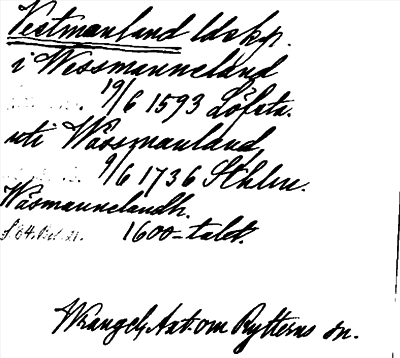 Vestmanland ldskp.
i Wessmanneland
19/6 1593 Löfsta.
uti Wässmanland
9/6 1736 Sthlm.
Wäsmannelandh.
1600-talet.
Wrangel, Ant. om Rytterns sn.